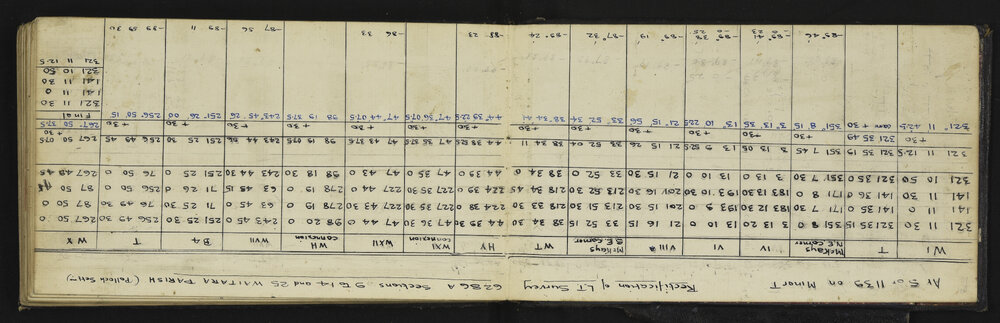 At 5 or 1139 on Minor T Rectification of L.T Survey 6286 A Sections 9 to 14 and 25 WAITARA PARISH (Pollock Settn)
W I T McKays N.E. Corner IV VI VIII McKays S.E. Corner WT HY W XI connexion W XII WH connexion W VII B4 T W X
321 11 30 321 35 15 351 8 15 3 13 20 13 10 0 21 16 15 33 52 15 38 34 30 44 39 30 47 36 30 47 44 0 98 20 0 243 45 0 251 25 30 256 49 30 267 50 0
141 11 0 141 35 0 171 7 30 183 12 30 193 9 30 201 15 30 213 51 30 218 34 30 224 38 0 227 35 30 227 43 30 278 19 0 63 45 0 71 25 30 76 49 30 87 50 0
141 11 30 141 36 0 171 8 0 183 13 30 193 10 30 201 16 30 213 52 30 218 34 45 224 39 30 227 35 30 227 43 30 278 19 0 63 45 15 71 26 0 256 50 0 87 50
321 10 50 321 35 0 351 7 30 3 13 0 13 10 0 21 15 30 33 52 0 38 34 0 44 39 0 47 35 0 47 43 0 98 18 30 243 44 30 251 25 0 76 50 0 267 49 45
321 11 12.5 321 35 19 351 7 45 3 13 05 13 9 52.5 21 15 56 33 52 04 38 34 11 44 38 52.5 47 35 37.5 47 43 37.5 98 19 07.5 243 44 56 251 25 30 256 49 45 267 50 07.5
+30 321 35 49 +30 +30 +30 +30 +30 +30 +30 +30 +30 +30 +30 +30
321° 11 42.5 corr +30 351° 8 15 3° 13 35 13° 10 22.5 21° 16 26 33° 52 34 38° 34 41 44° 39 22.5 47° 36 07.5 47 44 07.5 98 19 37.5 243° 45 26 251° 26 00 256 50 15 267° 50 37.5
Final
321 11 30
141 11 0
141 11 30
321 10 50
321 11 12.5
-85° 46 -89° 41 -89° 38 -89° 19 -87° 32 -89° 24 -88 23 -86 33 -87 56 -89 11 -89 59 30